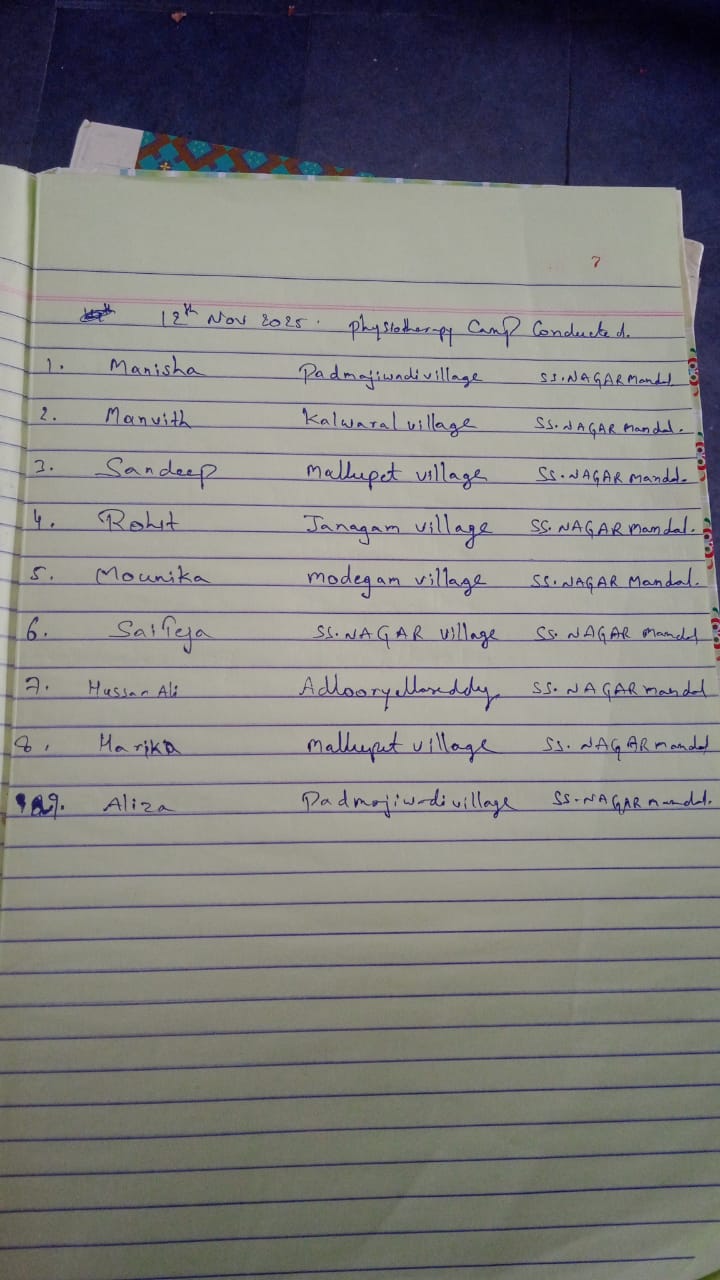 7
12th Nov 2025. physiotherapy Camp Conducted.
1. Manisha Padmajiwadi village SS.NAGAR Mandal.
2. Manvith Kalwaral village SS.NAGAR Mandal.
3. Sandeep Mallupet village SS.NAGAR Mandal.
4. Rohit Janagam village SS.NAGAR Mandal.
5. Mounika modegam village SS.NAGAR Mandal.
6. SaiTeja SS.NAGAR village SS.NAGAR Mandal
7. Hussan Ali Adllooryellareddy SS.NAGAR mandal
8. Harika Mallupet village SS.NAGAR mandal
9. Aliza Padmajiwadi village SS.NAGAR Mandal.